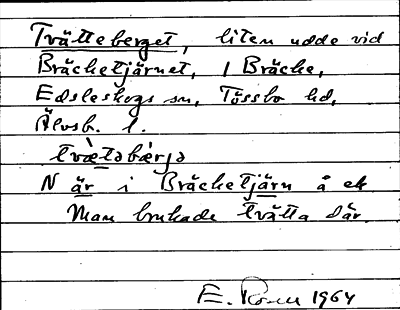 Tvätteberget, liten udde vid
Bräcketjärnet, / Bräcke,
Edsleskogs sn, Tössbo hd,
Älvsb. l.
tvæ̀tabæ̀rjə
N är i Bräcketjärn å ek
Man brukade tvätta där.
E. 1964